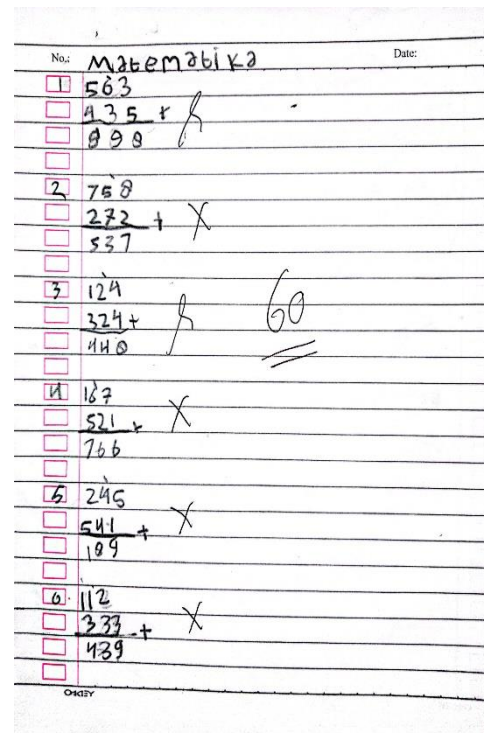 No.: Matematika Date:
1 563
435 +
998
2 758
272 +
537
3 124
324 +
448
60
4 167
521 +
766
5 245
541 +
189
6. 112
333 +
439